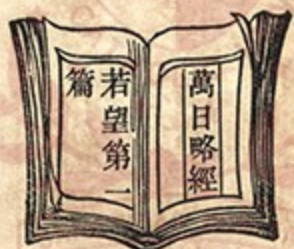 萬日略經
若望第一
篇